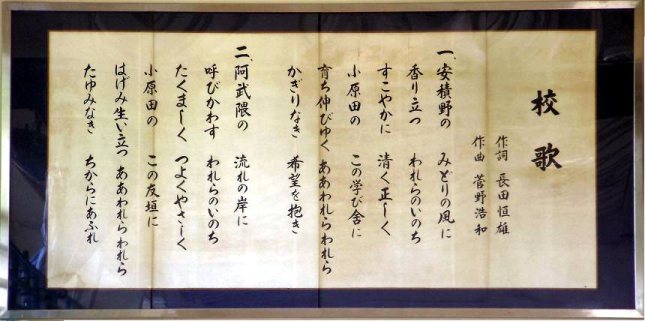 校歌
作詞 長田恒雄
作曲 菅野浩和
一、安積野の みどりの風に
香り立つ われらのいのち
すこやかに 清く正しく
小原田の この学び舎に
育ち伸びゆく ああわれらわれら
かぎりなき 希望を抱き
二、阿武隈の 流れの岸に
呼びかわす われらのいのち
たくましく つよくやさしく
小原田の この友垣に
はげみ生い立つ ああわれらわれら
たゆみなき ちからにあふれ